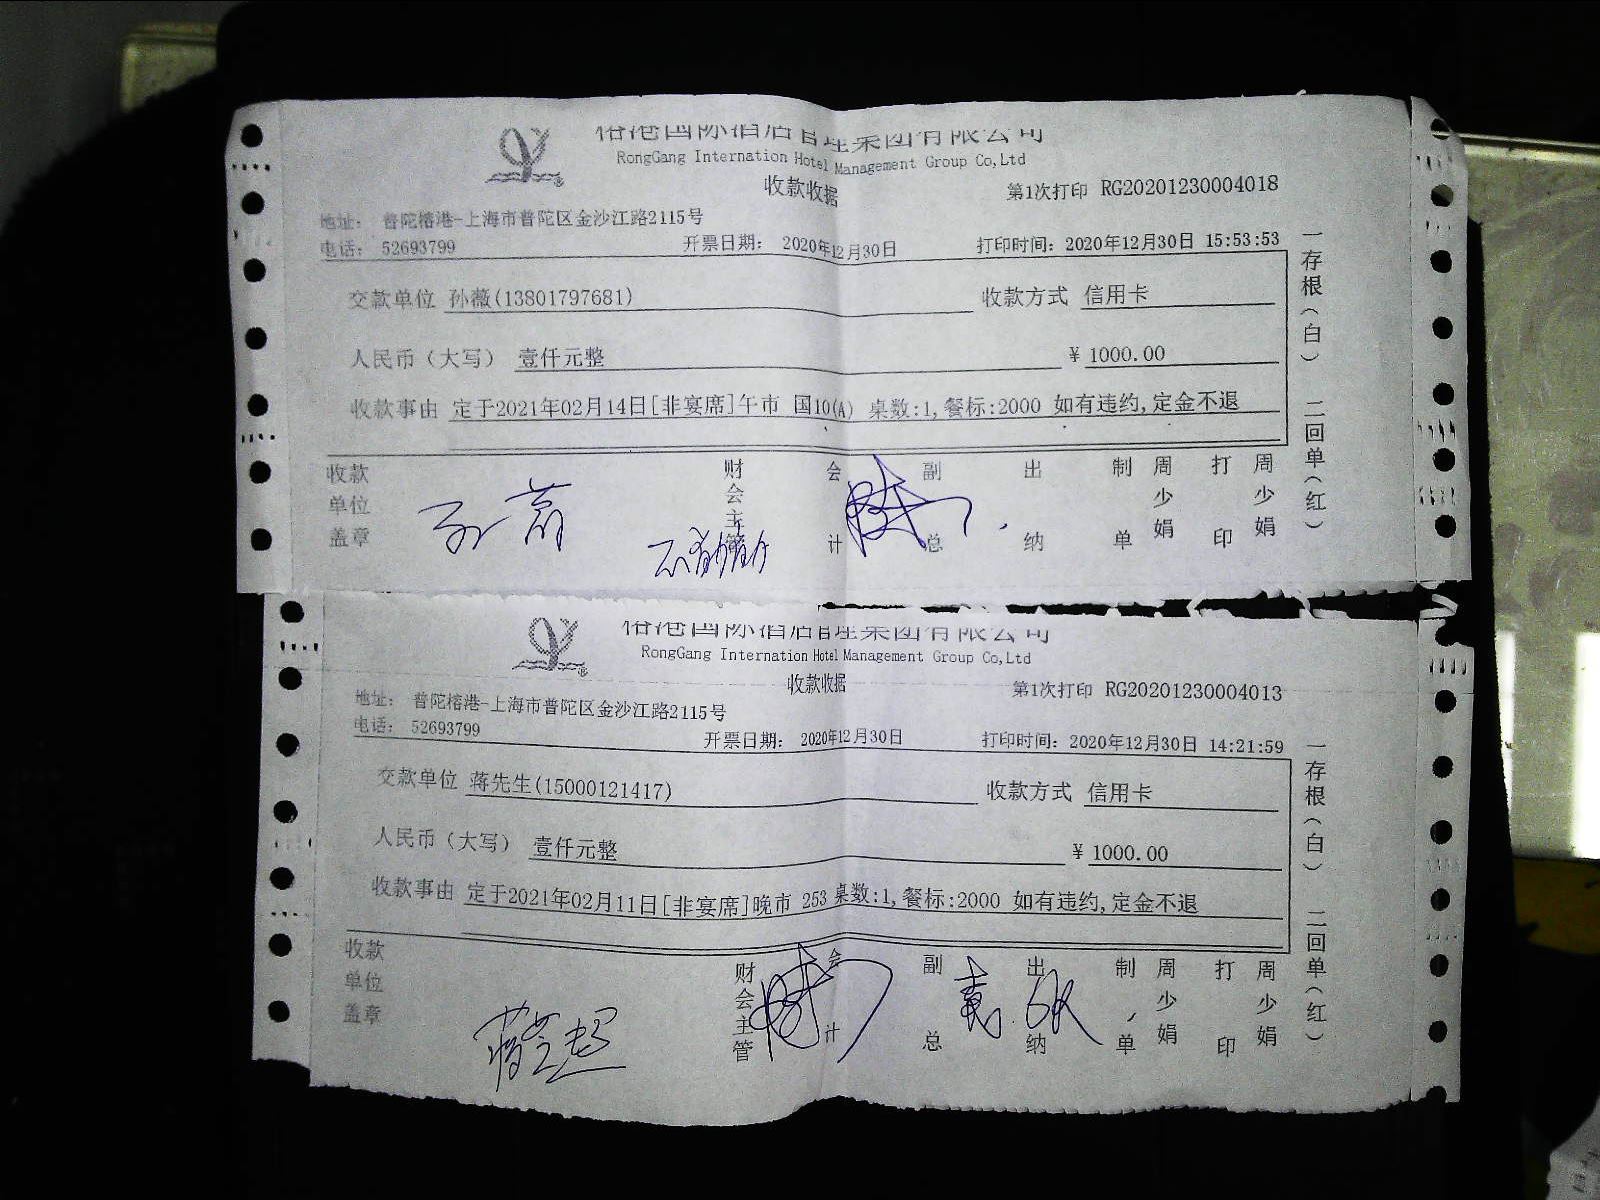 榕港国际酒店管理集团有限公司
RongGang Internation Hotel Management Group Co,Ltd
收款收据
第1次打印 RG20201230004018
地址: 普陀榕港-上海市普陀区金沙江路2115号
电话: 52693799 开票日期: 2020年12月30日 打印时间: 2020年12月30日 15:53:53
交款单位 孙薇(13801797681) 收款方式 信用卡
人民币(大写) 壹仟元整 ¥ 1000.00
收款事由 定于2021年02月14日[非宴席]午市 国10(A) 桌数:1,餐标:2000 如有违约,定金不退
收款单位盖章 财会主管 会计 副总 出纳 制单 周少娟 打印 周少娟
一存根(白) 二回单(红)
榕港国际酒店管理集团有限公司
RongGang Internation Hotel Management Group Co,Ltd
收款收据
第1次打印 RG20201230004013
地址: 普陀榕港-上海市普陀区金沙江路2115号
电话: 52693799 开票日期: 2020年12月30日 打印时间: 2020年12月30日 14:21:59
交款单位 蒋先生(15000121417) 收款方式 信用卡
人民币(大写) 壹仟元整 ¥ 1000.00
收款事由 定于2021年02月11日[非宴席]晚市 253 桌数:1,餐标:2000 如有违约,定金不退
收款单位盖章 财会主管 会计 副总 出纳 制单 周少娟 打印 周少娟
一存根(白) 二回单(红)